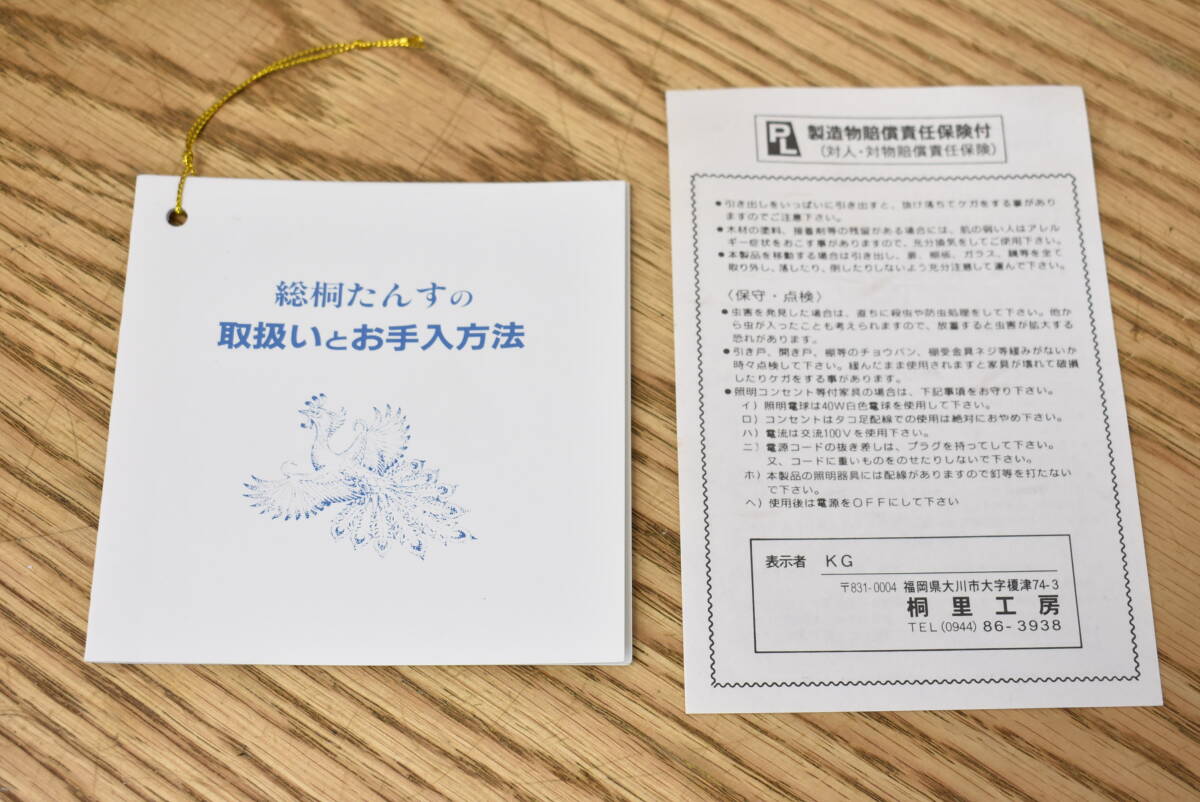 総桐たんすの
取扱いとお手入方法
PL 製造物賠償責任保険付
（対人・対物賠償責任保険）
●引き出しをいっぱいに引き出すと、抜け落ちてケガをする事があり
ますのでご注意下さい。
●木材の塗料、接着剤等の残留がある場合には、肌の弱い人はアレル
ギー症状をおこす事がありますので、充分換気をしてご使用下さい。
●本製品を移動する場合は引き出し、扉、棚板、ガラス、鏡等を全て
取り外し、落したり、倒したりしないよう充分注意して運んで下さい。
〈保守・点検〉
●虫害を発見した場合は、直ちに殺虫や防虫処理をして下さい。他か
ら虫が入ったことも考えられますので、放置すると虫害が拡大する
恐れがあります。
●引き戸、開き戸、棚等のチョウバン、棚受金具ネジ等緩みがないか
時々点検して下さい。緩んだまま使用されますと家具が壊れて破損
したりケガをする事があります。
●照明コンセント等付家具の場合は、下記事項をお守り下さい。
イ）照明電球は40W白色電球を使用して下さい。
ロ）コンセントはタコ足配線での使用は絶対におやめ下さい。
ハ）電流は交流100Vを使用下さい。
ニ）電源コードの抜き差しは、プラグを持ってして下さい。
又、コードに重いものをのせたりしないで下さい。
ホ）本製品の照明器具には配線がありますので釘等を打たない
で下さい。
ヘ）使用後は電源をOFFにして下さい
表示者 KG
〒831-0004 福岡県大川市大字榎津74-3
桐里工房
TEL(0944) 86-3938